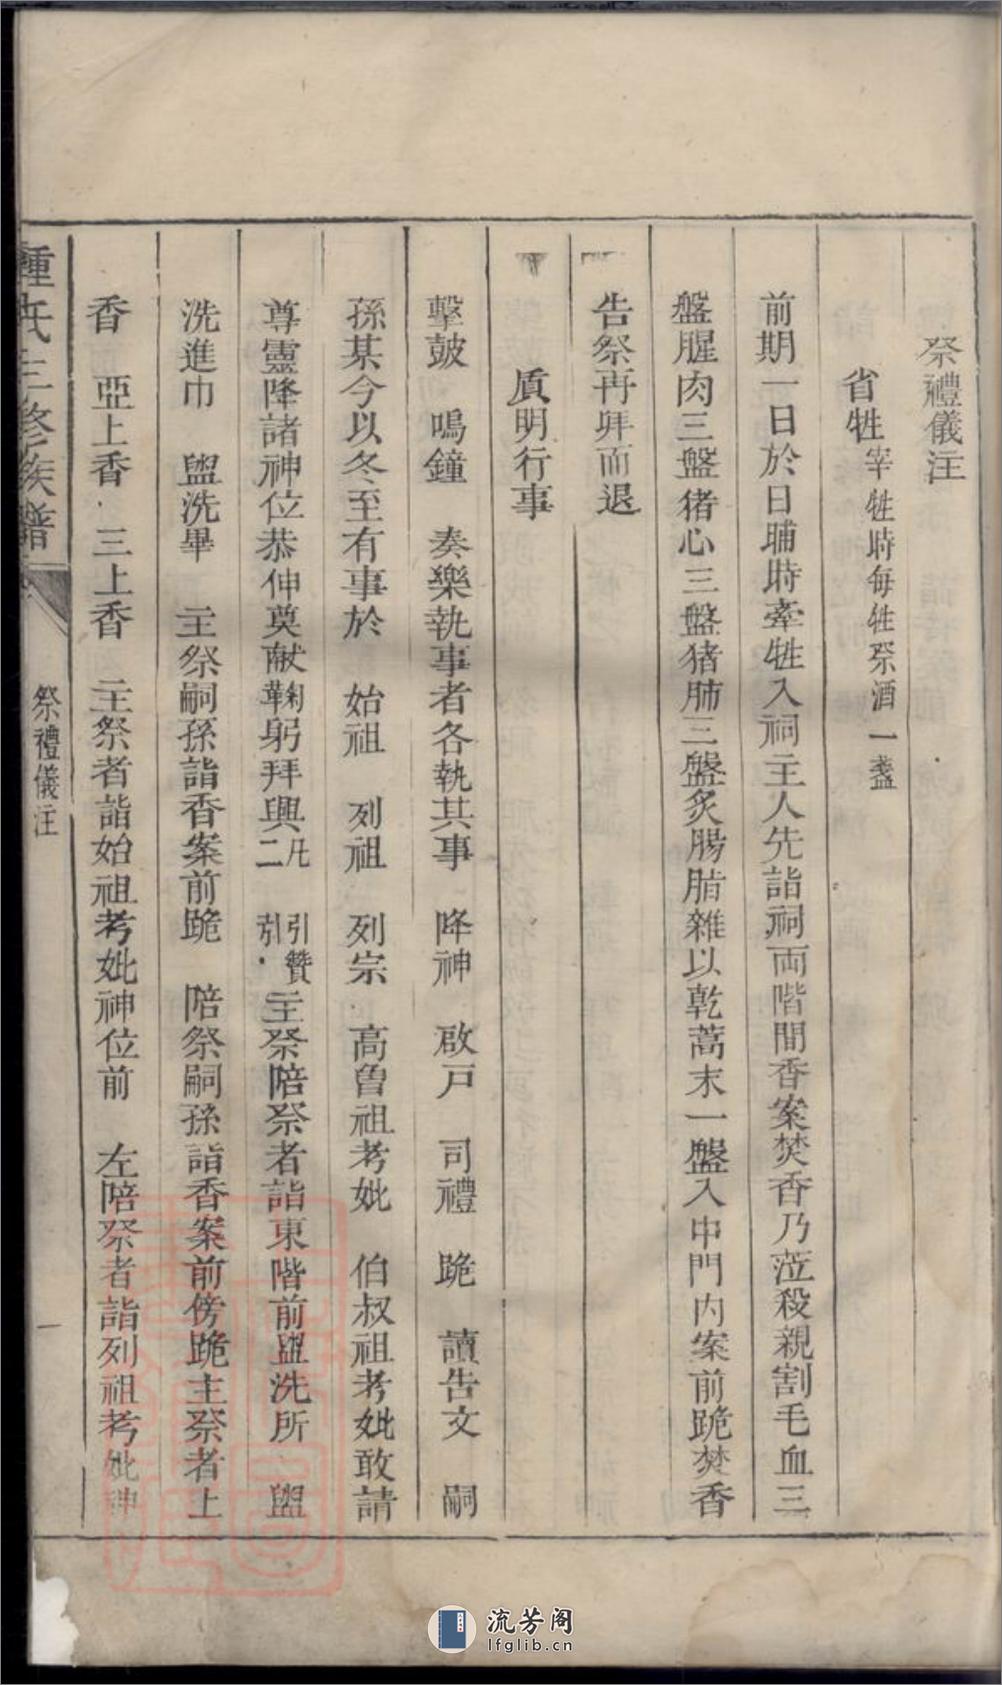 祭禮儀注
省牲宰牲時每牲祭酒一盞
前期一日於日晡時牽牲入祠主人先詣祠両階間香案焚香乃蒞殺親割毛血三
盤腥肉三盤猪心三盤猪肺三盤炙腸脂雜以乾蒿末一盤入中門内案前跪焚香
告祭再拜而退
質明行事
擊鼓　鳴鐘　奏樂執事者各執其事　降神　啟戸　司禮　跪　讀告文　嗣
孫某今以冬至有事於　始祖　列祖　列宗　高曾祖考妣　伯叔祖考妣敢請
尊靈降諸神位恭伸奠献鞠躬拜興凡二　引贊引主祭陪祭者詣東階前盥洗所　盥
洗進巾　盥洗畢　主祭嗣孫詣香案前跪　陪祭嗣孫詣香案前傍跪主祭者上
香　亞上香　三上香　主祭者詣始祖考妣神位前　左陪祭者詣列祖考妣神
三修族譜
祭禮儀注
一
流芳阁
lfglib.cn